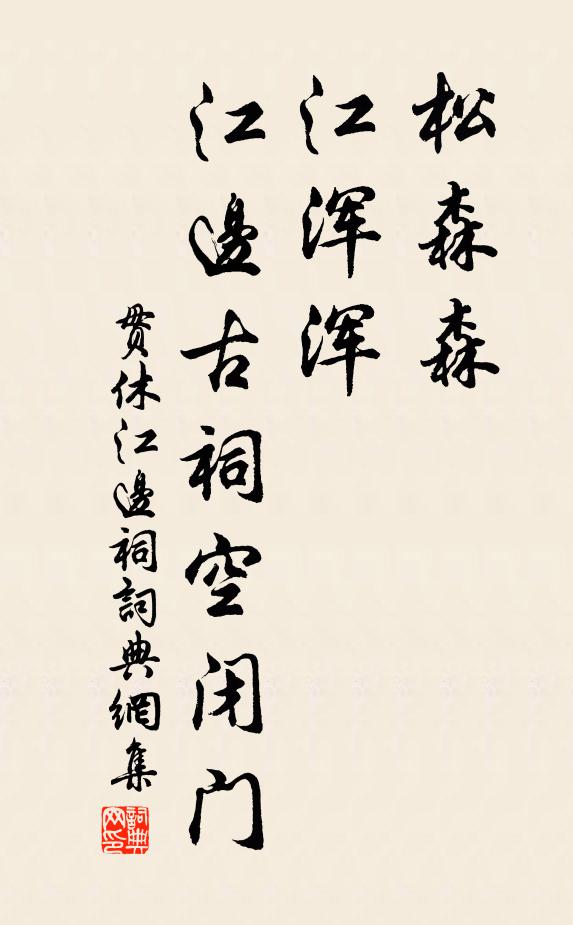 松森森
江浑浑
江邊古祠空闭门
贯休江邊祠詞典網集
詞典
网印